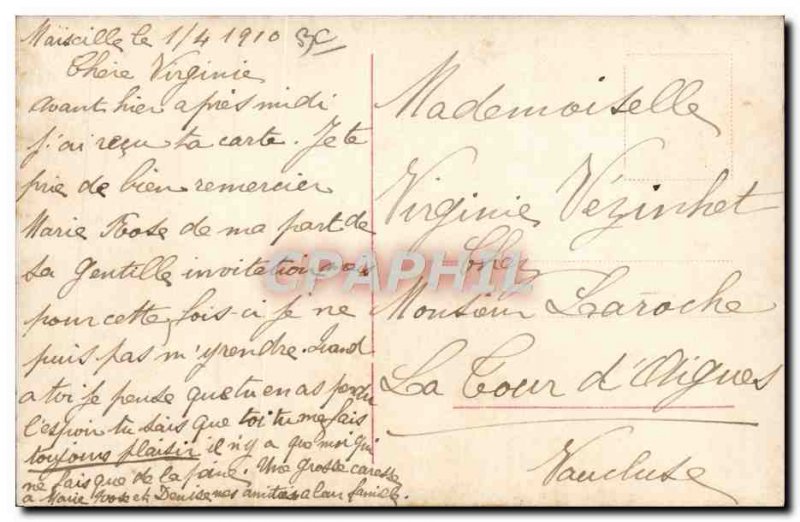 Marseille le 1/4 1910
Chère Virginie
avant hier après midi
j'ai reçu ta carte. Je te
prie de bien remercier
Marie Rose de ma part de
sa gentille invitation mais
pour cette fois-ci je ne
puis pas m'y rendre. Quand
a toi je pense que tu en as perdu
l'espoir tu sais que toi tu me fais
toujours plaisir il n'y a que moi qui
ne fais que de la peine. Une grosse caresse
a Marie Rose et Denise mes amitiés a leur famille.
Mademoiselle
Virginie Vézinhet
Chez
Monsieur Laroche
La Tour d'Aigues
Vaucluse
CPAPHIL